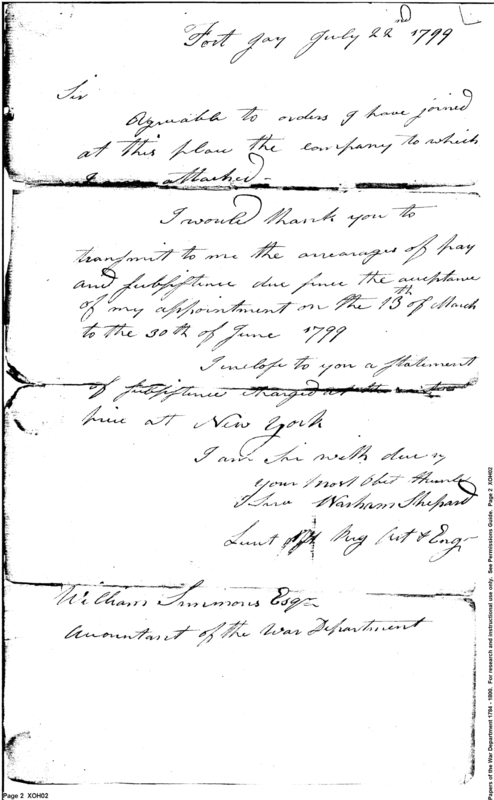 Fort Jay July 22nd 1799
Sir
Agreeable to orders I have joined
at this place the company to which
I attached -
I would thank you to
transmit to me the arrearages of pay
and subsistence due since the acceptance
of my appointment on the 13th of March
to the 30th of June 1799
I inclose to you a statement
of subsistence charged at the
price at New York
I am Sir with due
your most Obet Humble
Warham Shepard
Lieut Reg Art & Engr
William Simmons Esqr
Accountant of the War Department
Page 2 XOH02
Papers of the War Department 1784 - 1800. For research and instructional use only. See Permissions Guide. Page 2 XOH02